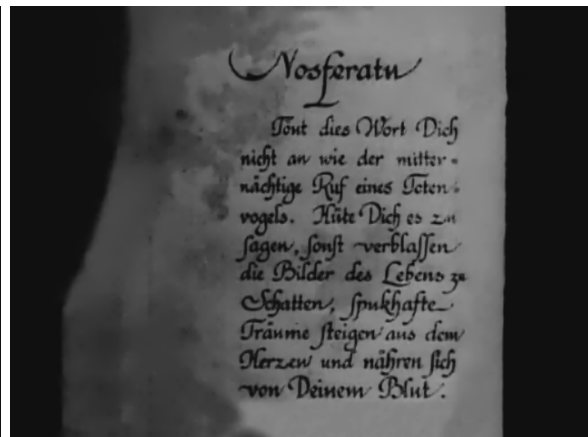 Nosferatu
Tönt dies Wort Dich
nicht an wie der mitter-
nächtige Ruf eines Toten-
vogels. Hüte Dich es zu
sagen, sonst verblassen
die Bilder des Lebens zu
Schatten, spukhafte
Träume steigen aus dem
Herzen und nähren sich
von Deinem Blut.